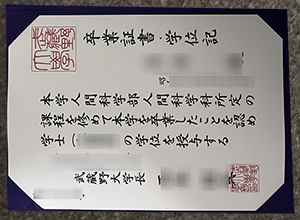 卒業証書・学位記
昭
本学人間科学部人間科学科所定の
課程を修めて本学を卒業したことを認め
学士（
の学位を授与する
武蔵野大学長